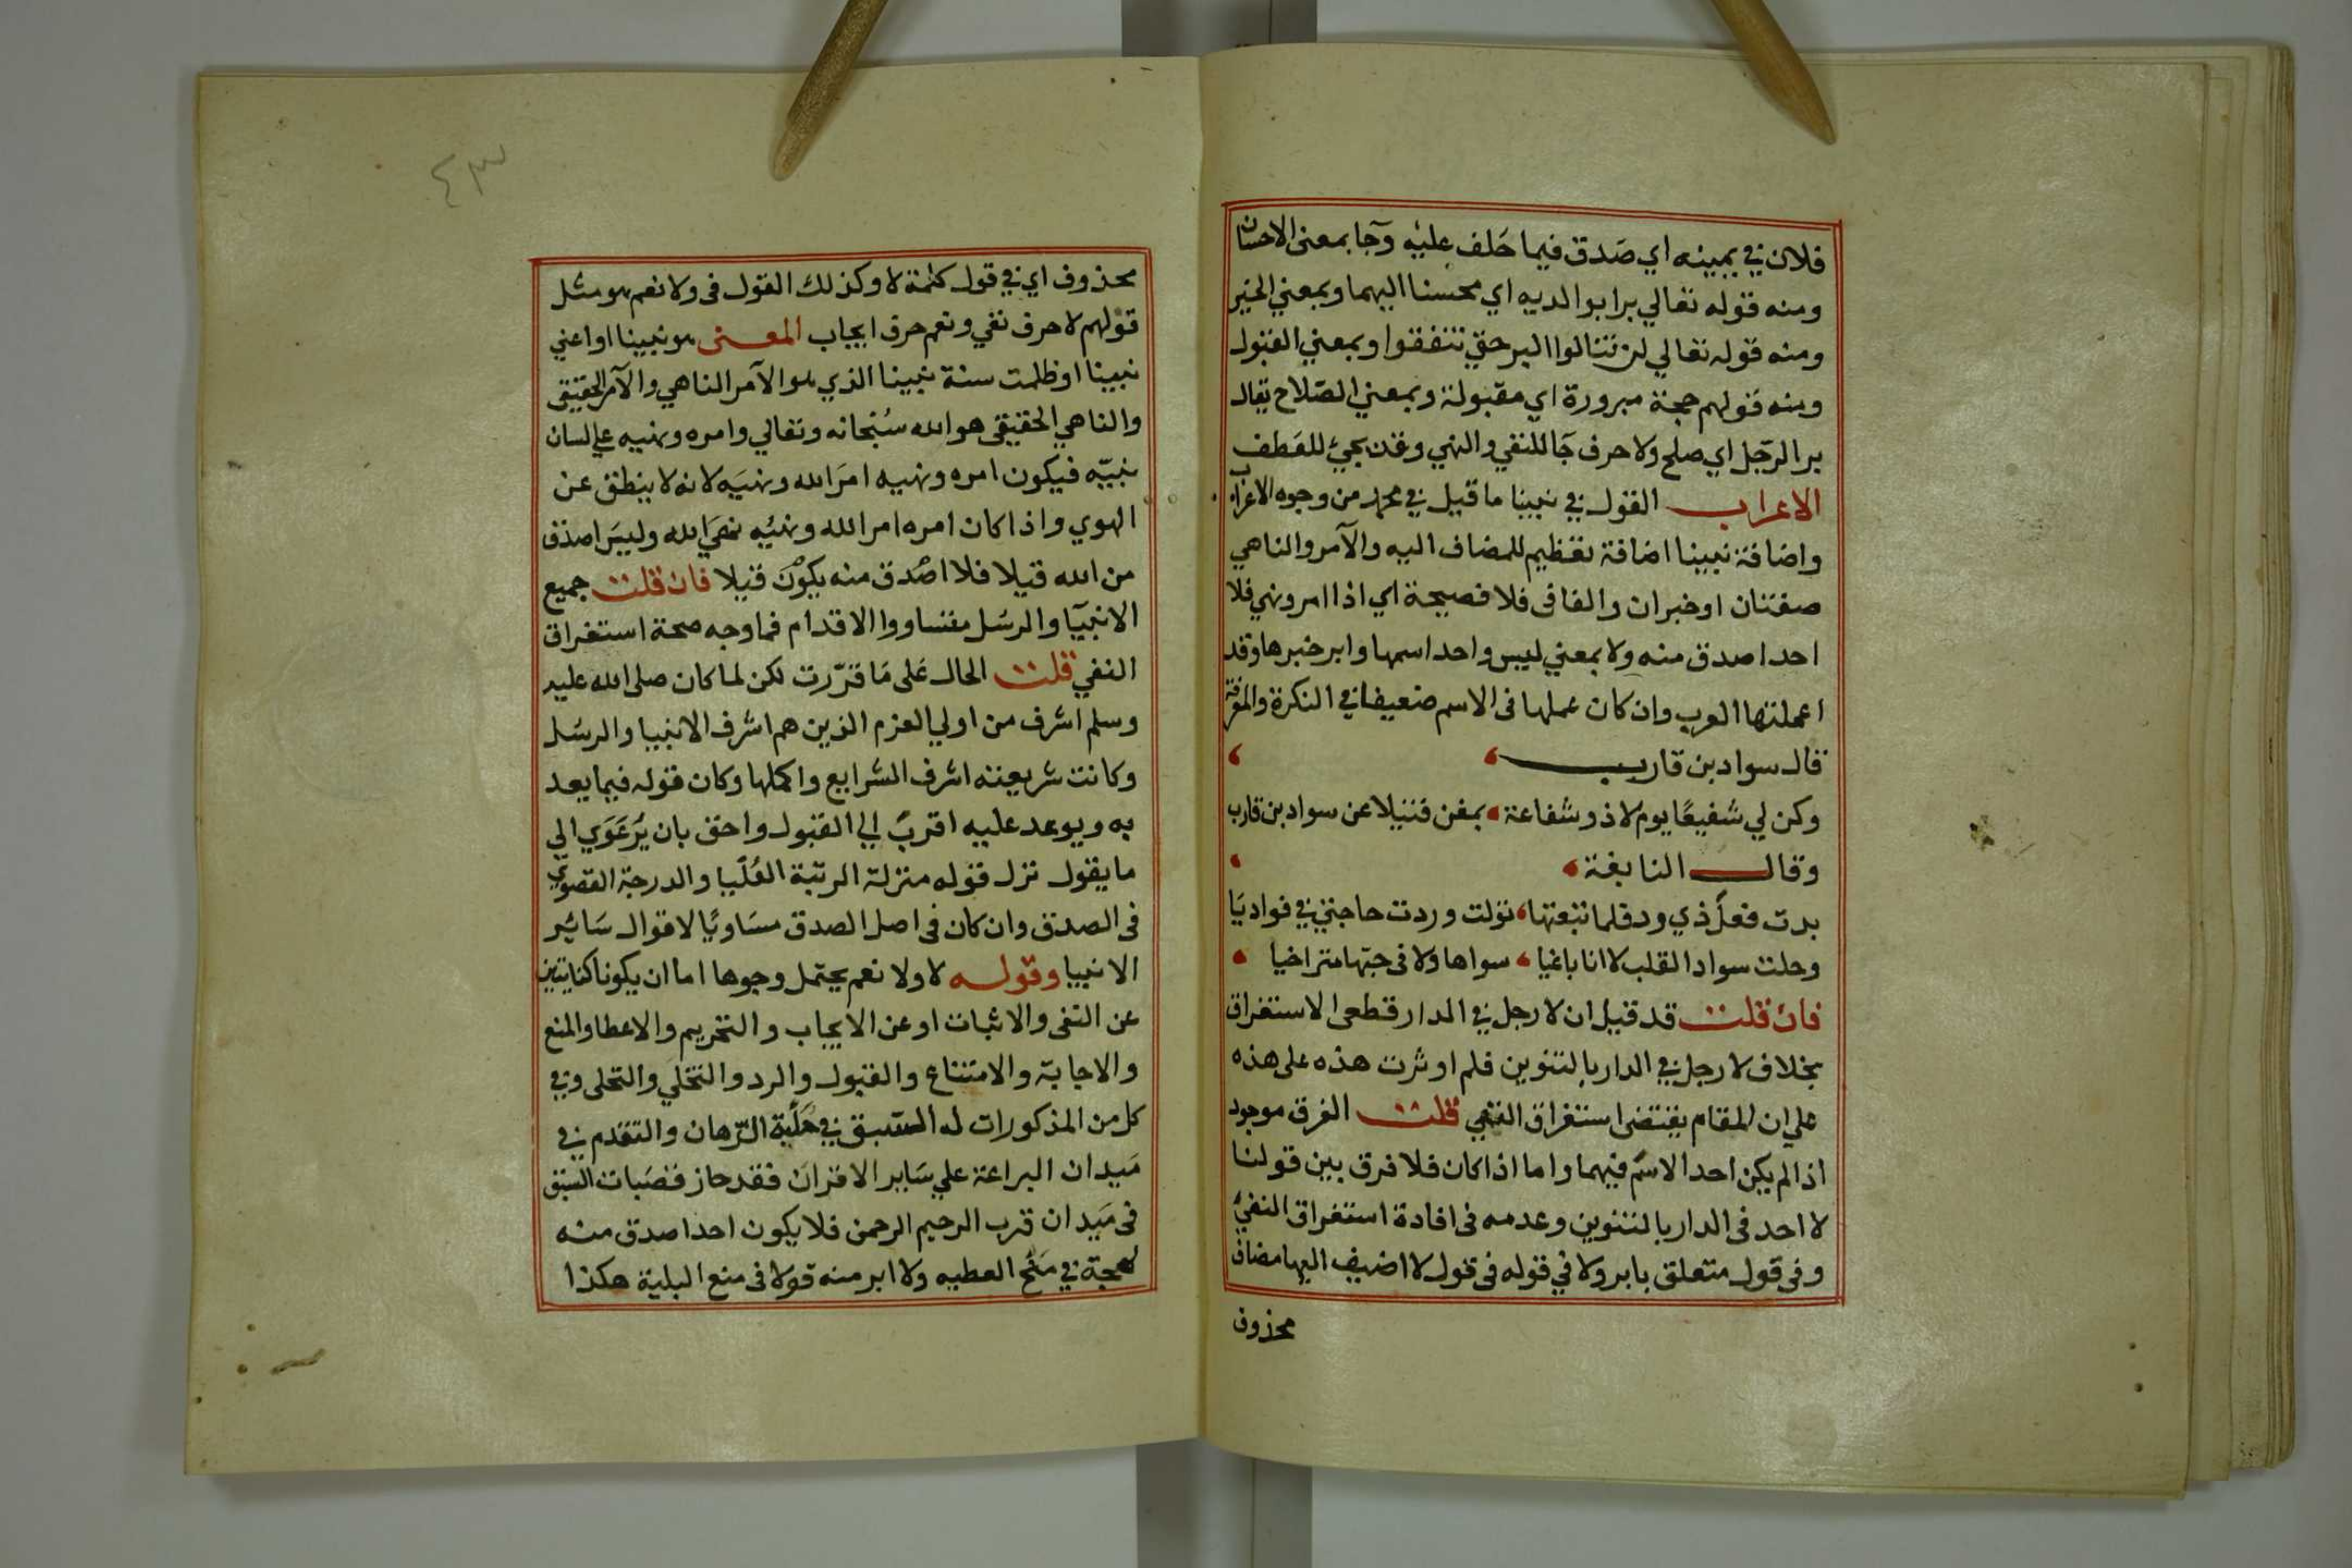 فلان في يمينه اي صَدق فيما حَلف عليه وجآ بمعنى الاحسان
ومنه قوله تعالي برا بوالديه اي محسنا اليهما وبمعني الخير
ومنه قوله تعالي لن تنالوا البر حتي تنفقوا وبمعني القبول
ومنه قولهم حجة مبرورة اي مقبولة وبمعني الصّلاح يقال
بر الرّجل اي صلح ولا حرف جَا للنفي والنهي وقد يجئ للعَطف
الاعراب القول في نبينا ما قيل في محمد من وجوه الاعراب
واضافة نبينا اضافة تعظيم للمضاف اليه والآمر والناهي
صفتنان او خبران والفا فى فلا فصيحة اي اذا امر ونهي فلا
احد اصدق منه ولا بمعني ليس واحد اسمها وابر خبرها وقد
اعملتها العرب وان كان عملها فى الاسم ضعيفا في النكرة والمعرفة
قال سواد بن قارب
وكن لي شفيعًا يوم لا ذو شفاعة بمغن فتيلا عن سواد بن قارب
وقال النابغة
بدت فعلَ ذي ود فلما تبعتها تولت وردت حاجتي في فواديَا
وحلت سواد القلب لا انا باغيا سواها ولا فى حبّها متراخيا
فان قلت قد قيل ان لا رجل في الدار قطعى الاستغراق
بخلاف لا رجل في الدار بالتنوين فلم اوثرت هذه على هذه
علي ان المقام يقتضى استغراق النفي قلت الفرق موجود
اذا لم يكن احد الاسم فيهما واما اذا كان فلا فرق بين قولنا
لا احد فى الدار بالتنوين وعدمه فى افادة استغراق النفي
وفى قول متعلق بابر ولا في قوله فى قول لا اضيف اليها مضاف
محذوف
٤٣
محذوف اي في قول كلمة لا وكذلك القول فى ولا نعم هو مثل
قولهم لا حرف نفي ونعم حرف ايجاب المعنى هو نبينا او اعني
نبينا او ظلمت سنة نبينا الذي هو الآمر الناهي والآمر الحقيقى
والناهي الحقيقى هو الله سُبْحانه وتعالي وامره ونهيه علي لسان
نبيّه فيكون امره ونهيه امرَ الله ونهيَه لانه لا ينطق عن
الهوي واذا كان امره امر الله ونهيُه نهيَ الله وليسَ اصدق
من الله قيلا فلا اصْدق منه يكوْنَ قيلا فان قلت جميع
الانبيَآ والرسَل متساووا الاقدام فما وجه صحة استغراق
النفي قلت الحال عَلى مَا قرّرت لكن لما كان صلى الله عليه
وسلم اشرف من اولي العزم الذين هم اشرف الانبيا والرسَل
وكانت شريعته اشرف الشرايع واكملها وكان قوله فيما يعد
به ويوعد عليه اقربَ الي القبول واحق بان يُرعَوَي الي
ما يقول نزل قوله منزلة الرتبة العُلْيا والدرجة القصوي
فى الصدق وان كان فى اصل الصدق مسَاويًا لاقوال سَائر
الانبيا وقوله لا ولا نعم يحتمل وجوها اما ان يكونا كنايتين
عن النفى والاثبات او عن الايجاب والتحريم والاعطا والمنع
والاجابة والامتناع والقبول والرد والتخلي والتحلى وفي
كل من المذكورات له السّبق في حَلْبة الرّهان والتقدم في
مَيدان البراعة علي سَاير الاقران فقد حاز قصَبات السّبق
فى مَيدان قرب الرحيم الرحمن فلا يكون احد اصدق منه
لهجة في مَنْح العطيه ولا ابر منه قولا فى منع البلية هكذا